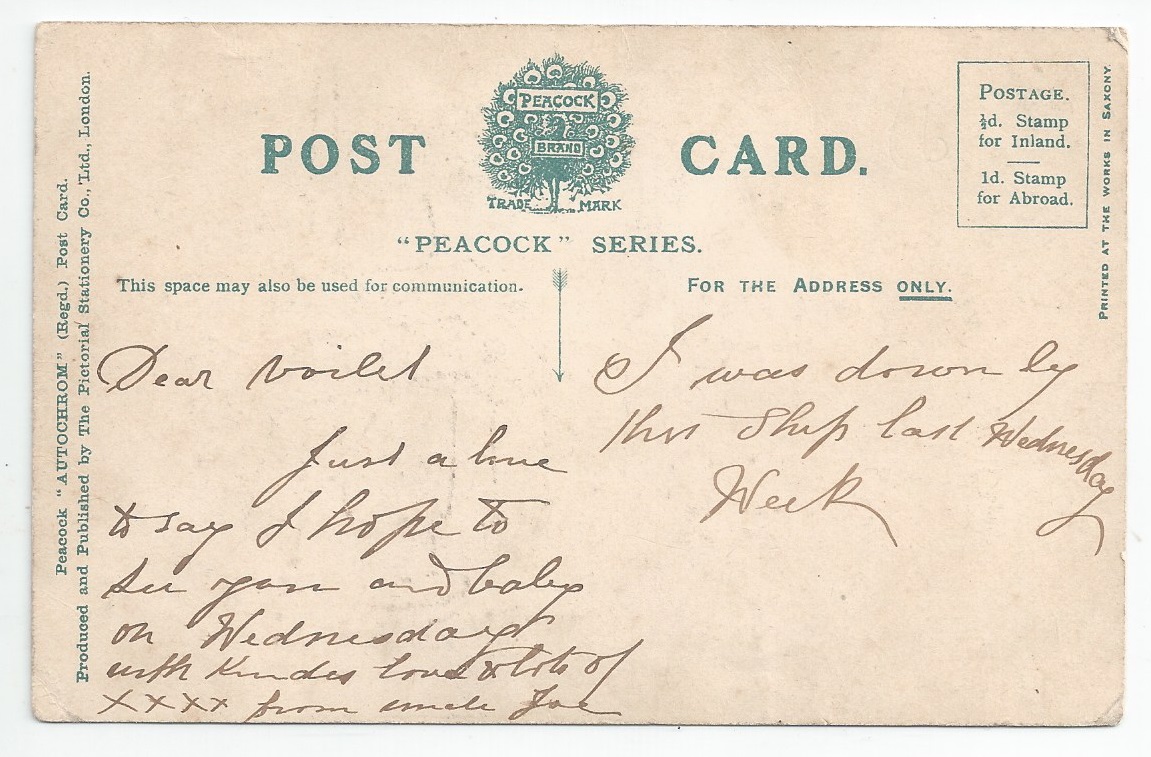 PEACOCK
BRAND
TRADE MARK
POST CARD.
"PEACOCK" SERIES.
POSTAGE.
½d. Stamp
for Inland.
1d. Stamp
for Abroad.
PRINTED AT THE WORKS IN SAXONY.
Peacock "AUTOCHROM" (Regd.) Post Card.
Produced and Published by The Pictorial Stationery Co., Ltd., London.
This space may also be used for communication.
FOR THE ADDRESS ONLY.
Dear Voilet
Just a line
to say I hope to
see you and baby
on Wednesday
with Kindes love & lots of
XXXX from uncle Joe
I was down by
this Ship last Wednesday
Week